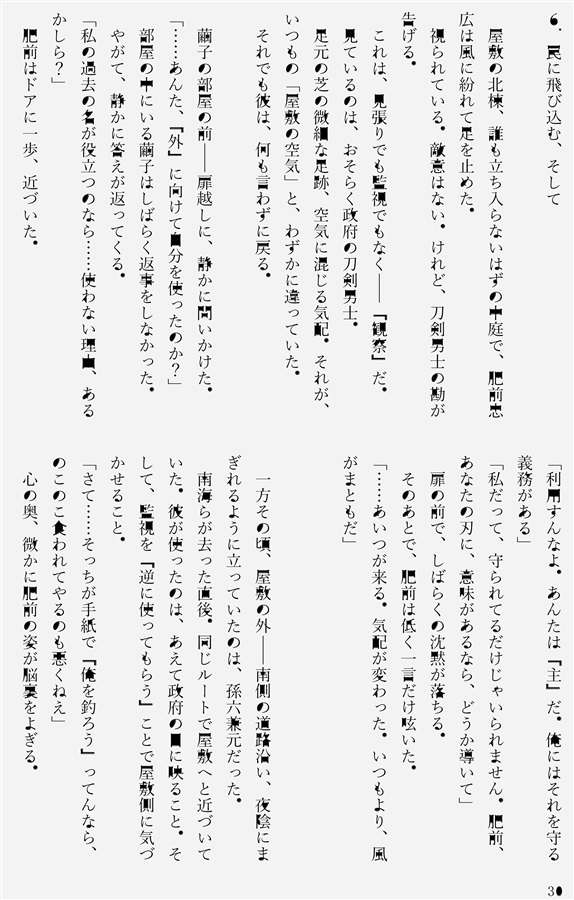 6．罠に飛び込む、そして
　屋敷の北棟、誰も立ち入らないはずの中庭で、肥前忠
広は風に紛れて足を止めた。
　視られている。敵意はない。けれど、刀剣男士の勘が
告げる。
　これは、見張りでも監視でもなく――『観察』だ。
　見ているのは、おそらく政府の刀剣男士。
　足元の芝の微細な足跡、空気に混じる気配。それが、
いつもの「屋敷の空気」と、わずかに違っていた。
　それでも彼は、何も言わずに戻る。
　繭子の部屋の前――扉越しに、静かに問いかけた。
「……あんた、『外』に向けて自分を使ったのか？」
　部屋の中にいる繭子はしばらく返事をしなかった。
　やがて、静かに答えが返ってくる。
「私の過去の名が役立つのなら……使わない理由、ある
かしら？」
　肥前はドアに一歩、近づいた。
「利用すんなよ。あんたは『主』だ。俺にはそれを守る
義務がある」
「私だって、守られてるだけじゃいられません。肥前、
あなたの刃に、意味があるなら、どうか導いて」
　扉の前で、しばらくの沈黙が落ちる。
　そのあとで、肥前は低く一言だけ呟いた。
「……あいつが来る。気配が変わった。いつもより、風
がまともだ」
　一方その頃、屋敷の外――南側の道路沿い、夜陰にま
ぎれるように立っていたのは、孫六兼元だった。
　南海らが去った直後。同じルートで屋敷へと近づいて
いた。彼が使ったのは、あえて政府の目に映ること。そ
して、監視を『逆に使ってもらう』ことで屋敷側に気づ
かせること。
「さて……そっちが手紙で『俺を釣ろう』ってんなら、
のこのこ食われてやるのも悪くねえ」
　心の奥、微かに肥前の姿が脳裏をよぎる。
30